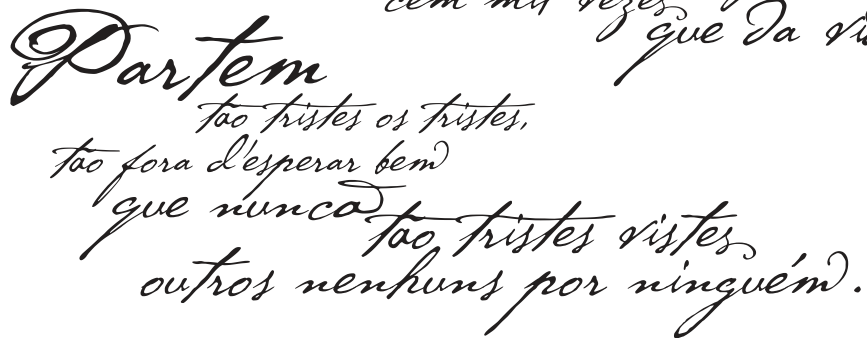 cem mil vezes
que da
Partem
tão tristes os tristes,
tão fora d'esperar bem
que nunca
tão tristes vistes
outros nenhuns por ninguém.